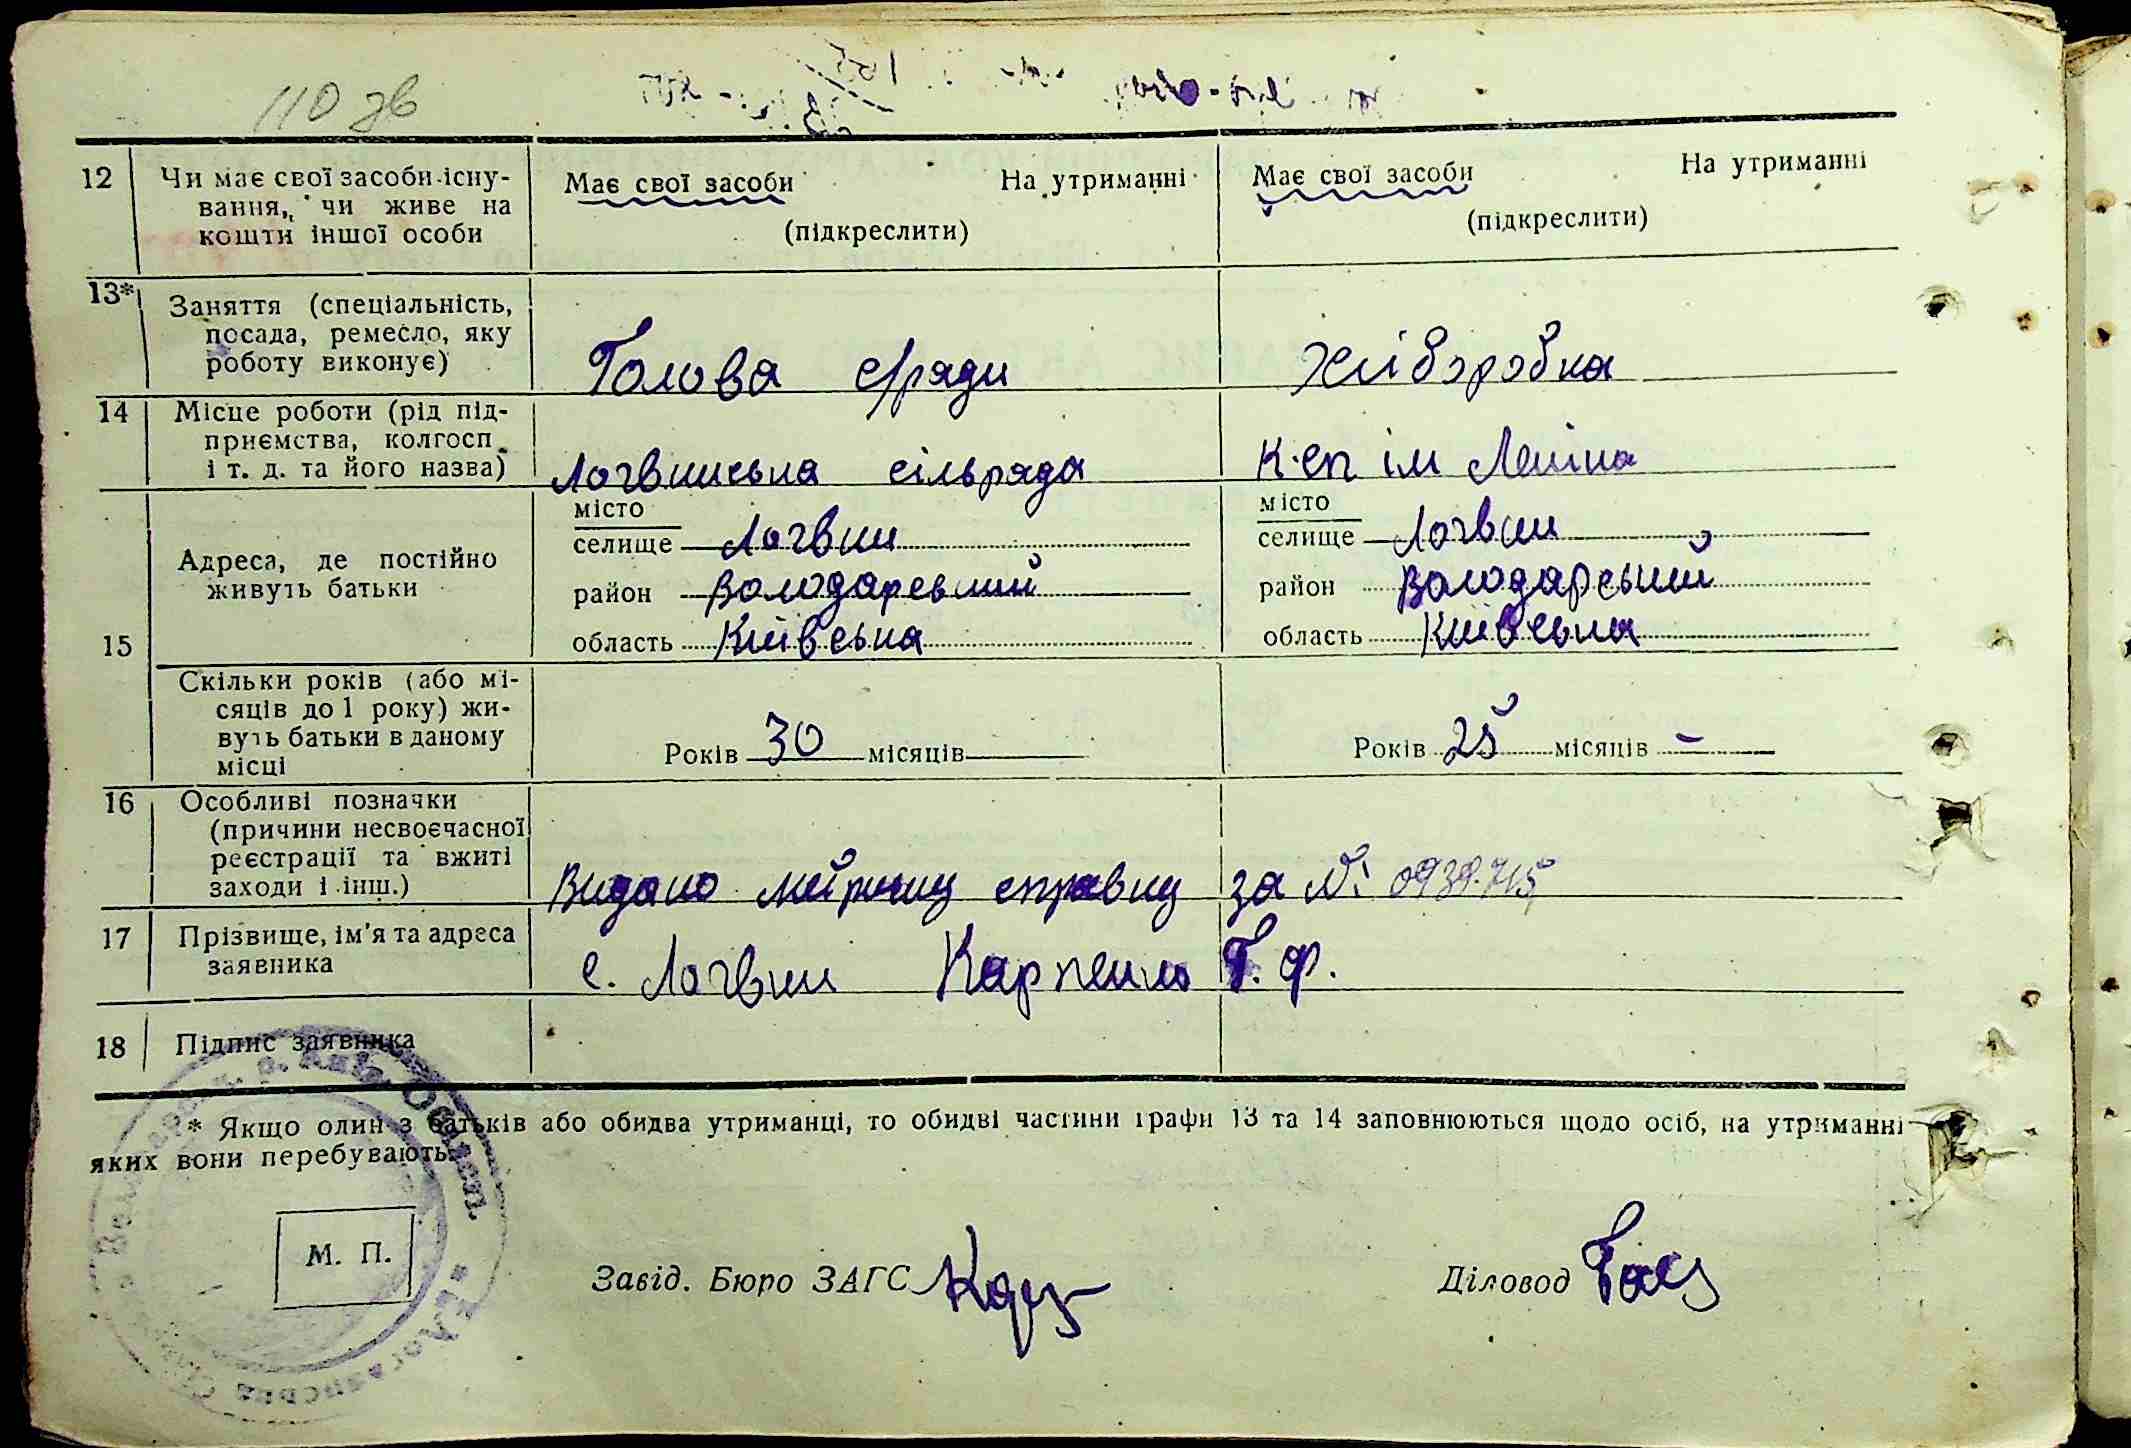 110 зв
12 Чи має свої засоби існу-
вання, чи живе на
кошти іншої особи
Має свої засоби На утриманні
(підкреслити)
Має свої засоби На утриманні
(підкреслити)
13* Заняття (спеціальність,
посада, ремесло, яку
роботу виконує)
Голова с/ради
Хліборобка
14 Місце роботи (рід під-
приємства, колгосп
і т. д. та його назва)
Логвинська сільрада
К-сп ім Леніна
15 Адреса, де постійно
живуть батьки
місто
селище Логвин
район Володарський
область Київська
місто
селище Логвин
район Володарський
область Київська
Скільки років (або мі-
сяців до 1 року) жи-
вуть батьки в даному
місці
Років 30 місяців
Років 25 місяців –
16 Особливі позначки
(причини несвоєчасної
реєстрації та вжиті
заходи і інш.)
Видано метричну справку за №
17 Прізвище, ім'я та адреса
заявника
с. Логвин Карпенко Г. Ф.
18 Підпис заявника
* Якщо один з батьків або обидва утриманці, то обидві частини графи 13 та 14 заповнюються щодо осіб, на утриманні
яких вони перебувають.
М. П.
Завід. Бюро ЗАГС
Діловод